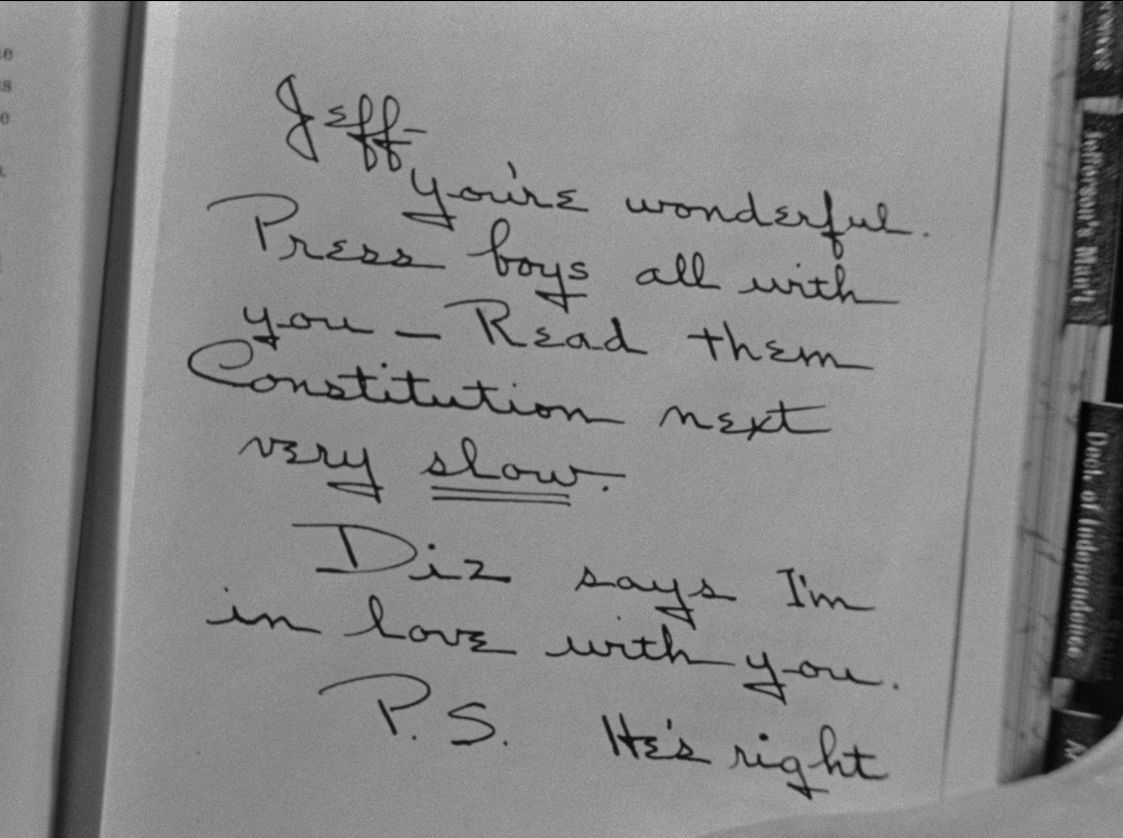 Jeff—
you're wonderful.
Press boys all with
you — Read them
Constitution next
very slow.
Diz says I'm
in love with you.
P.S. He's right
Jefferson's Man'l
Decl. of Independence